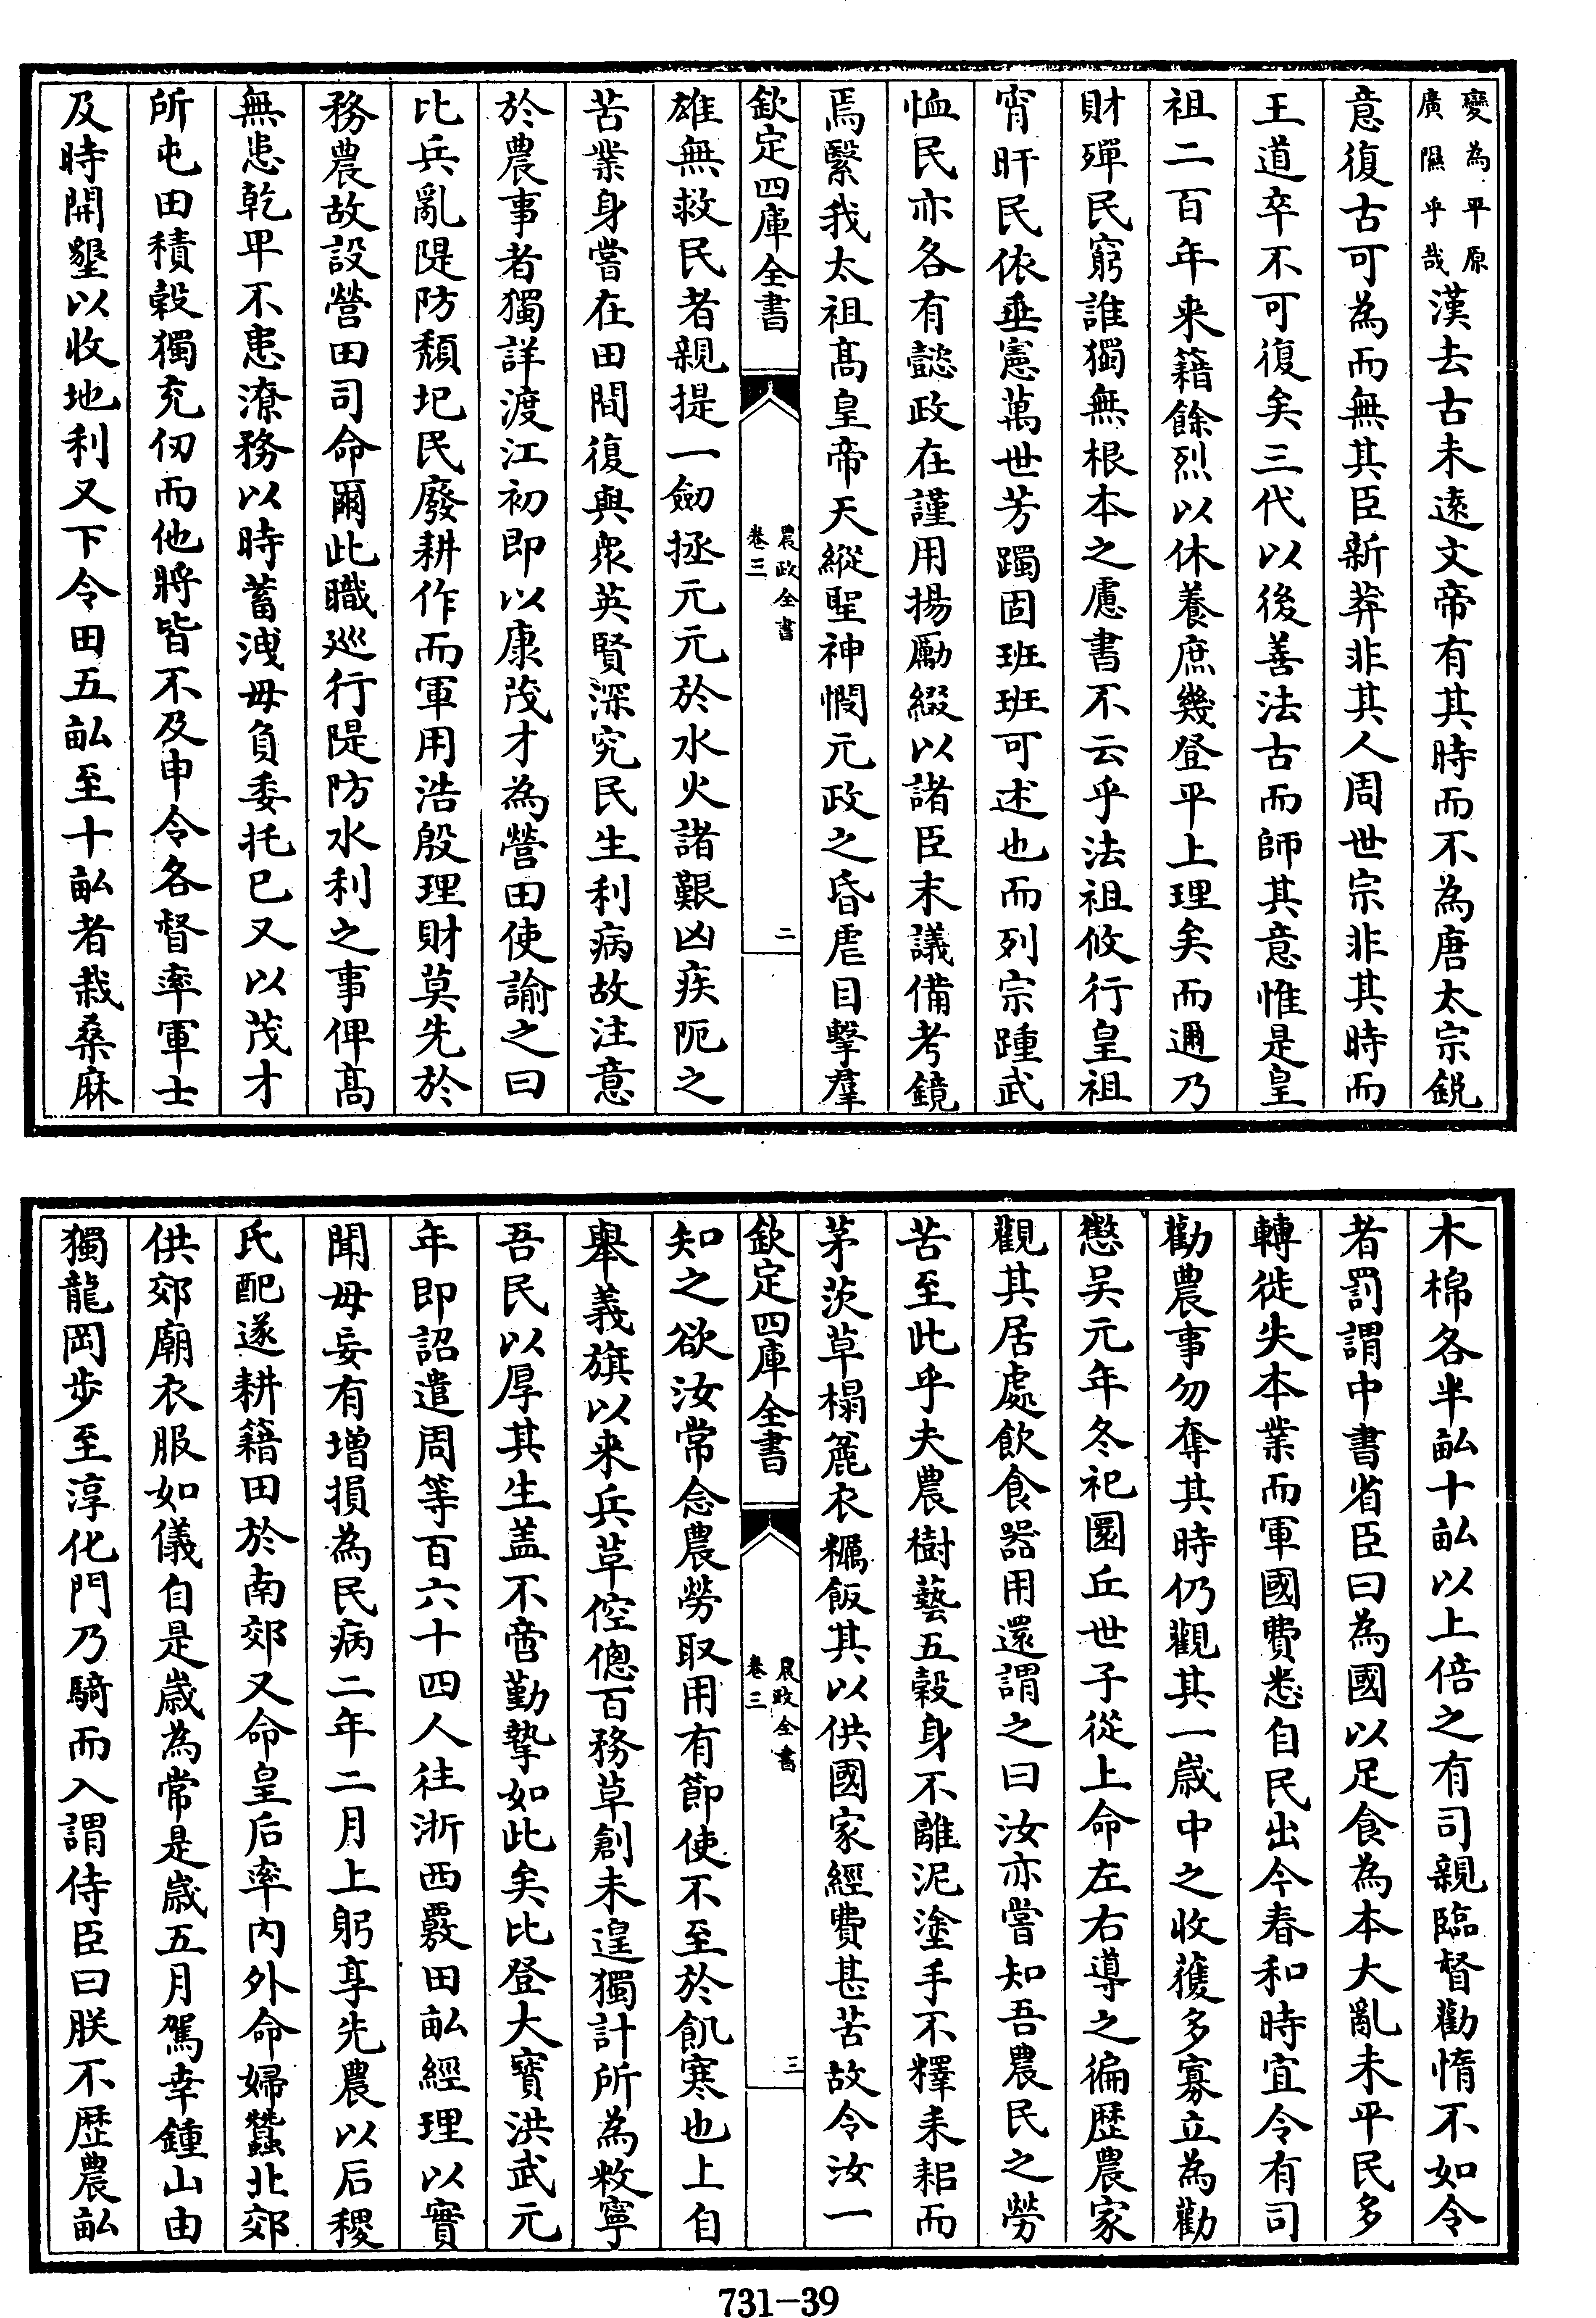 變為平原
廣隰乎哉漢去古未逺文帝有其時而不為唐太宗鋭
意復古可為而無其臣新莽非其人周世宗非其時而
王道卒不可復矣三代以後善法古而師其意惟是皇
祖二百年来籍餘烈以休養庶幾登平上理矣而邇乃
財殫民窮誰獨無根本之慮書不云乎法祖攸行皇祖
宵旰民依垂憲萬世芳躅固班班可述也而列宗踵武
恤民亦各有懿政在謹用揚勵綴以諸臣末議備考鏡
焉繄我太祖髙皇帝天縱聖神憫元政之昏虐目擊羣
欽定四庫全書
農政全書
卷三
二
雄無救民者親提一劒拯元元於水火諸艱凶疾阨之
苦業身嘗在田間復與衆英賢深究民生利病故注意
於農事者獨詳渡江初即以康茂才為營田使諭之曰
比兵亂隄防頽圮民廢耕作而軍用浩殷理財莫先於
務農故設營田司命爾此職巡行隄防水利之事俾髙
無患乾卑不患潦務以時蓄洩毋負委托已又以茂才
所屯田積榖獨充仞而他將皆不及申令各督率軍士
及時開墾以收地利又下令田五畝至十畝者栽桑麻
木棉各半畝十畝以上倍之有司親臨督勸惰不如令
者罰謂中書省臣曰為國以足食為本大亂未平民多
轉徙失本業而軍國費悉自民出今春和時宜令有司
勸農事勿奪其時仍觀其一歳中之收穫多寡立為勸
懲吴元年冬祀圜丘世子從上命左右導之徧歴農家
觀其居處飲食器用還謂之曰汝亦嘗知吾農民之勞
苦至此乎夫農樹藝五榖身不離泥塗手不釋耒耜而
茅茨草榻麄衣糲飯其以供國家經費甚苦故令汝一
欽定四庫全書
農政全書
卷三
三
知之欲汝常念農勞取用有節使不至於飢寒也上自
舉義旗以来兵革倥傯百務草創未遑獨計所為敉寧
吾民以厚其生盖不啻勤摯如此矣比登大寳洪武元
年即詔遣周等百六十四人往浙西覈田畝經理以實
聞毋妄有增損為民病二年二月上躬享先農以后稷
氏配遂耕籍田於南郊又命皇后率内外命婦蠶北郊
供郊廟衣服如儀自是歳為常是歳五月駕幸鍾山由
獨龍岡步至淳化門乃騎而入謂侍臣曰朕不歴農畝
731-39